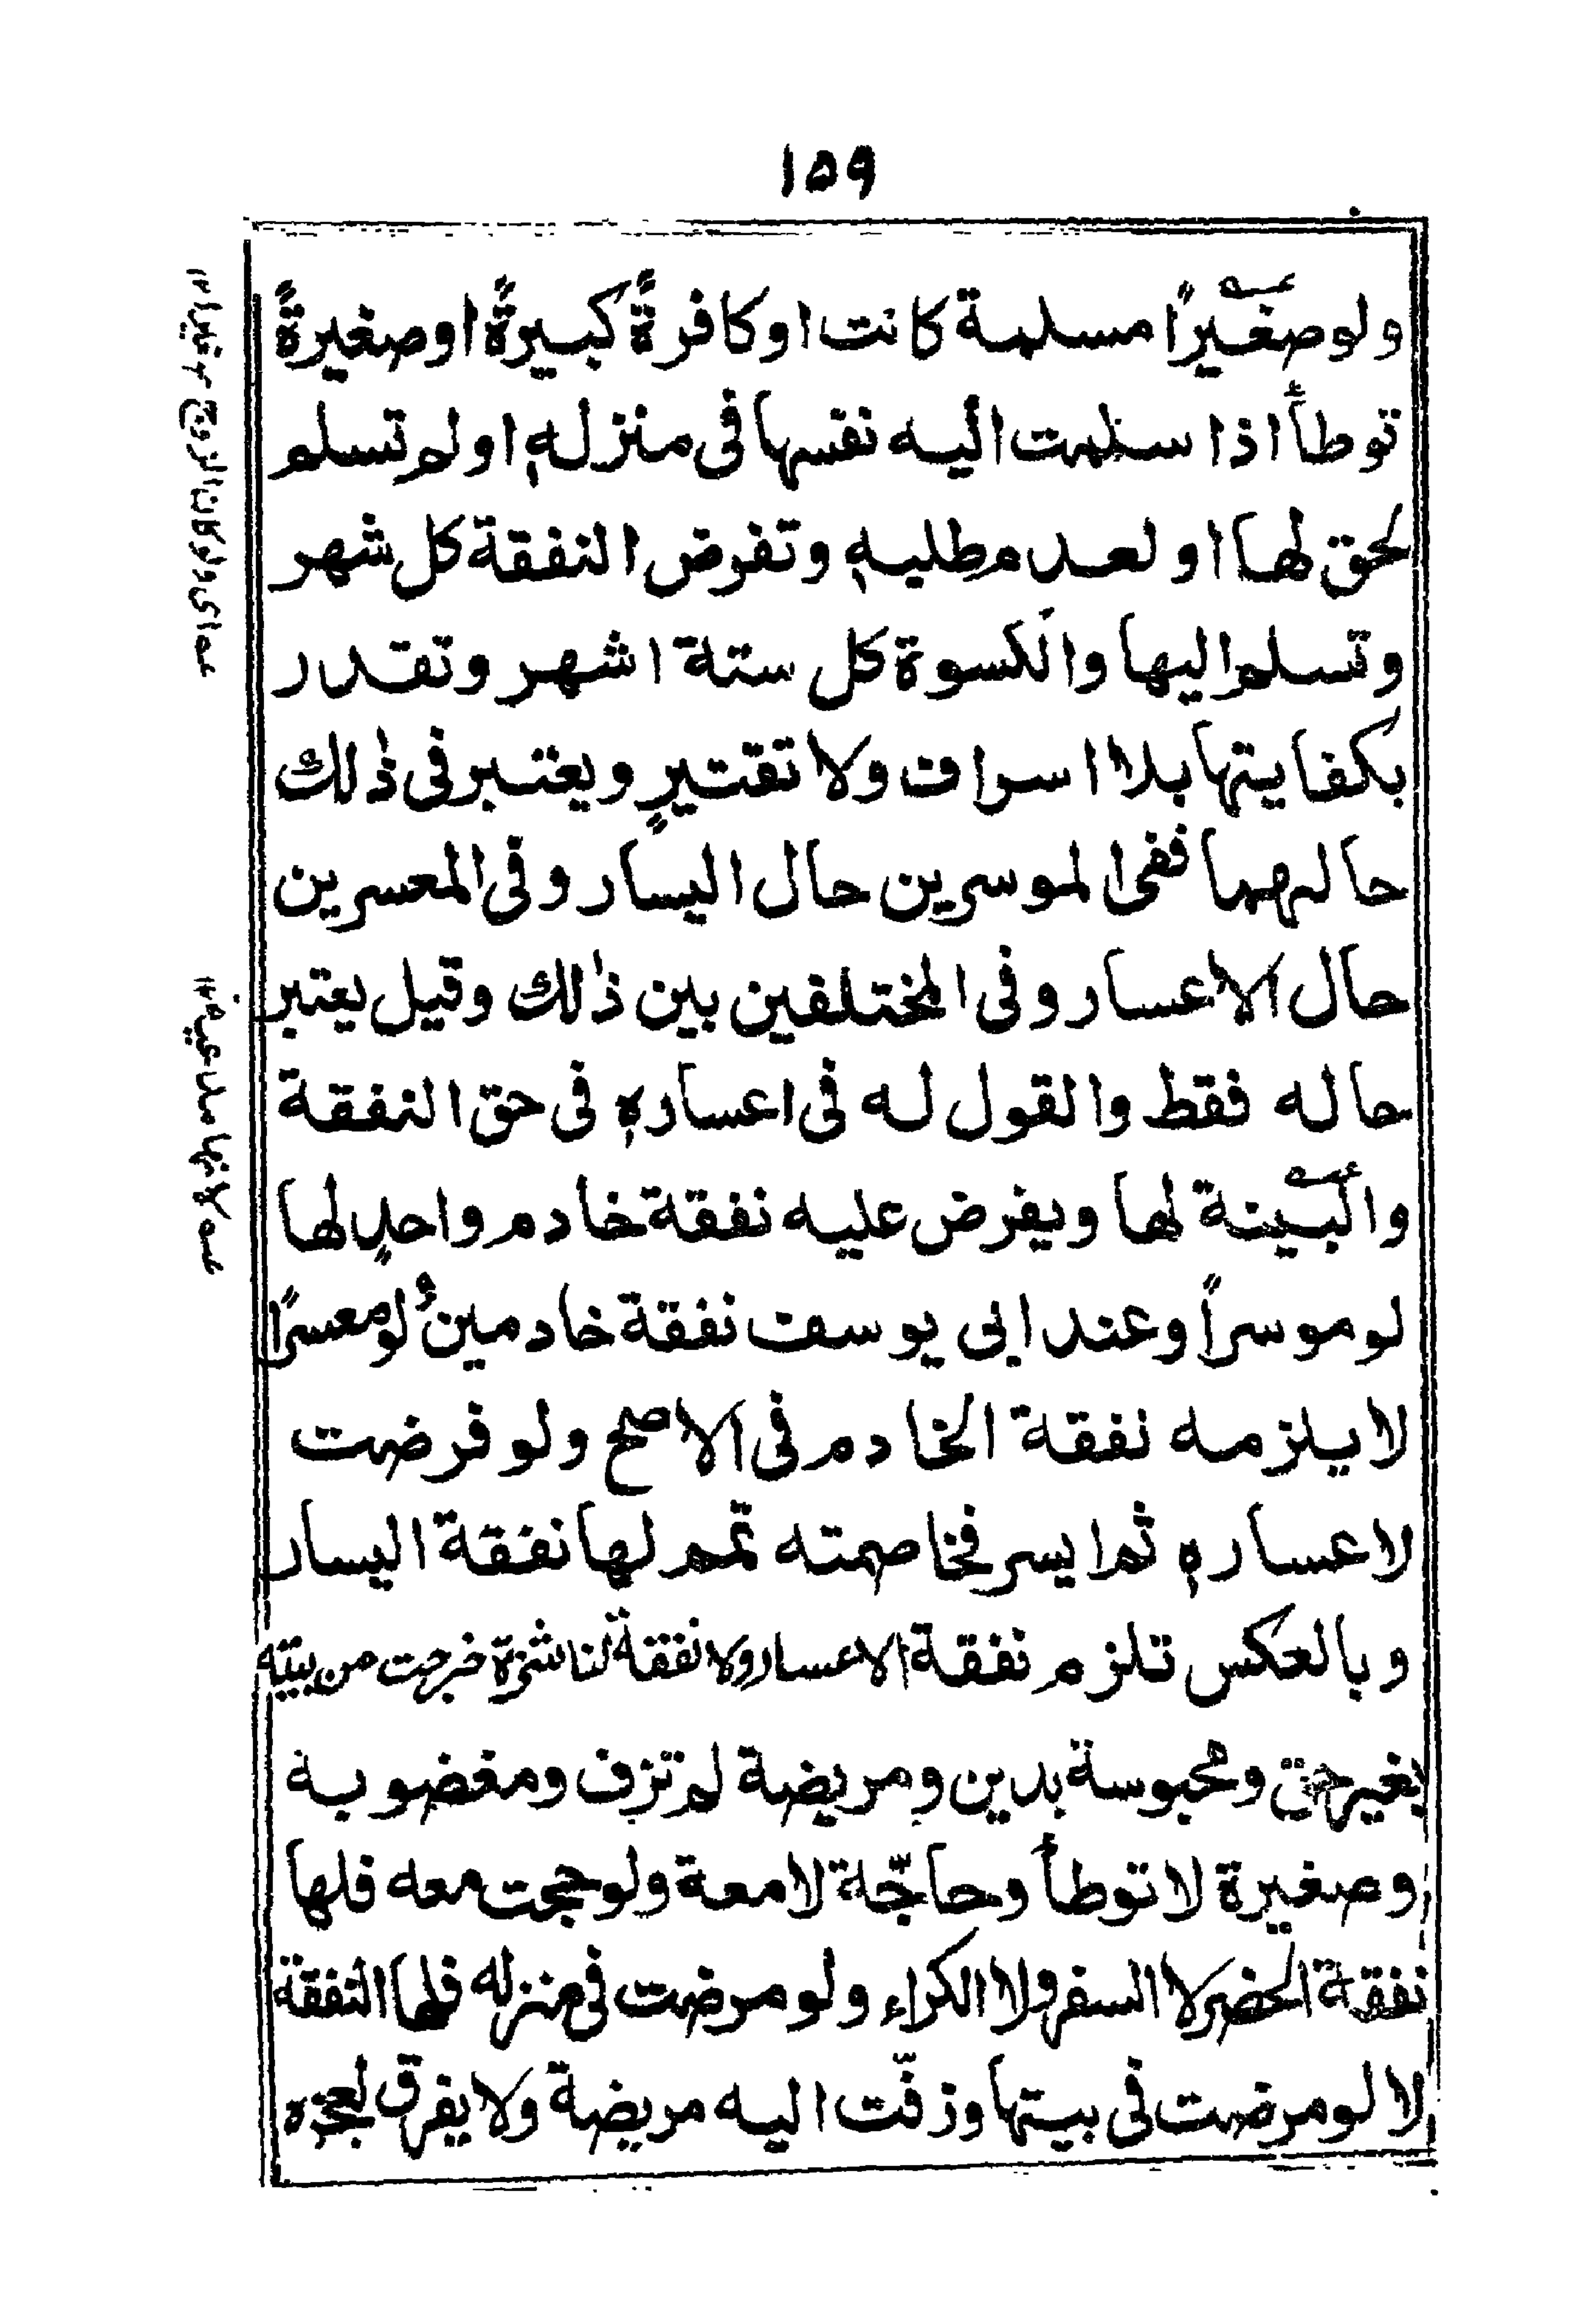 ١٥٩
ولو صغيرًا مسلمة كانت او كافرةً كبيرةً او صغيرةً
توطأ اذا سلمت اليه نفسها فى منزله او لم تسلم
لحق لها او لعدم طلبه وتفرض النفقة كل شهر
وتسلم اليها والكسوة كل ستة اشهر وتقدر
بكفايتها بلا اسراف ولا تقتيرٍ ويعتبر فى ذٰلك
حالهما ففى الموسرين حال اليسار وفى المعسرين
حال الاعسار وفى المختلفين بين ذٰلك وقيل يعتبر
حاله فقط والقول له فى اعساره فى حق النفقة
والبينة لها ويفرض عليه نفقة خادم واحدٍ لها
لو موسراً وعند ابى يوسف نفقة خادمين ولو معسرًا
لا يلزمه نفقة الخادم فى الاصح ولو فرضت
لاعساره ثم ايسر فخاصمته تمم لها نفقة اليسار
وبالعكس تلزم نفقة الاعسار ولا نفقة لناشزة خرجت من بيته
بغير حق ومحبوسة بدين ومريضة لم تزف ومغضوبة
وصغيرة لا توطأ وحاجّة لا معة ولو حجت معه فلها
نفقة الحضر لا السفر ولا الكراء ولو مرضت فى منزله فلها النفقة
لا لو مرضت فى بيتها وزفّت اليه مريضة ولا يفرق لعجزه
عه اى ولو كان الزوج صغيرا ١٢
عه لانها مدعية ١٢